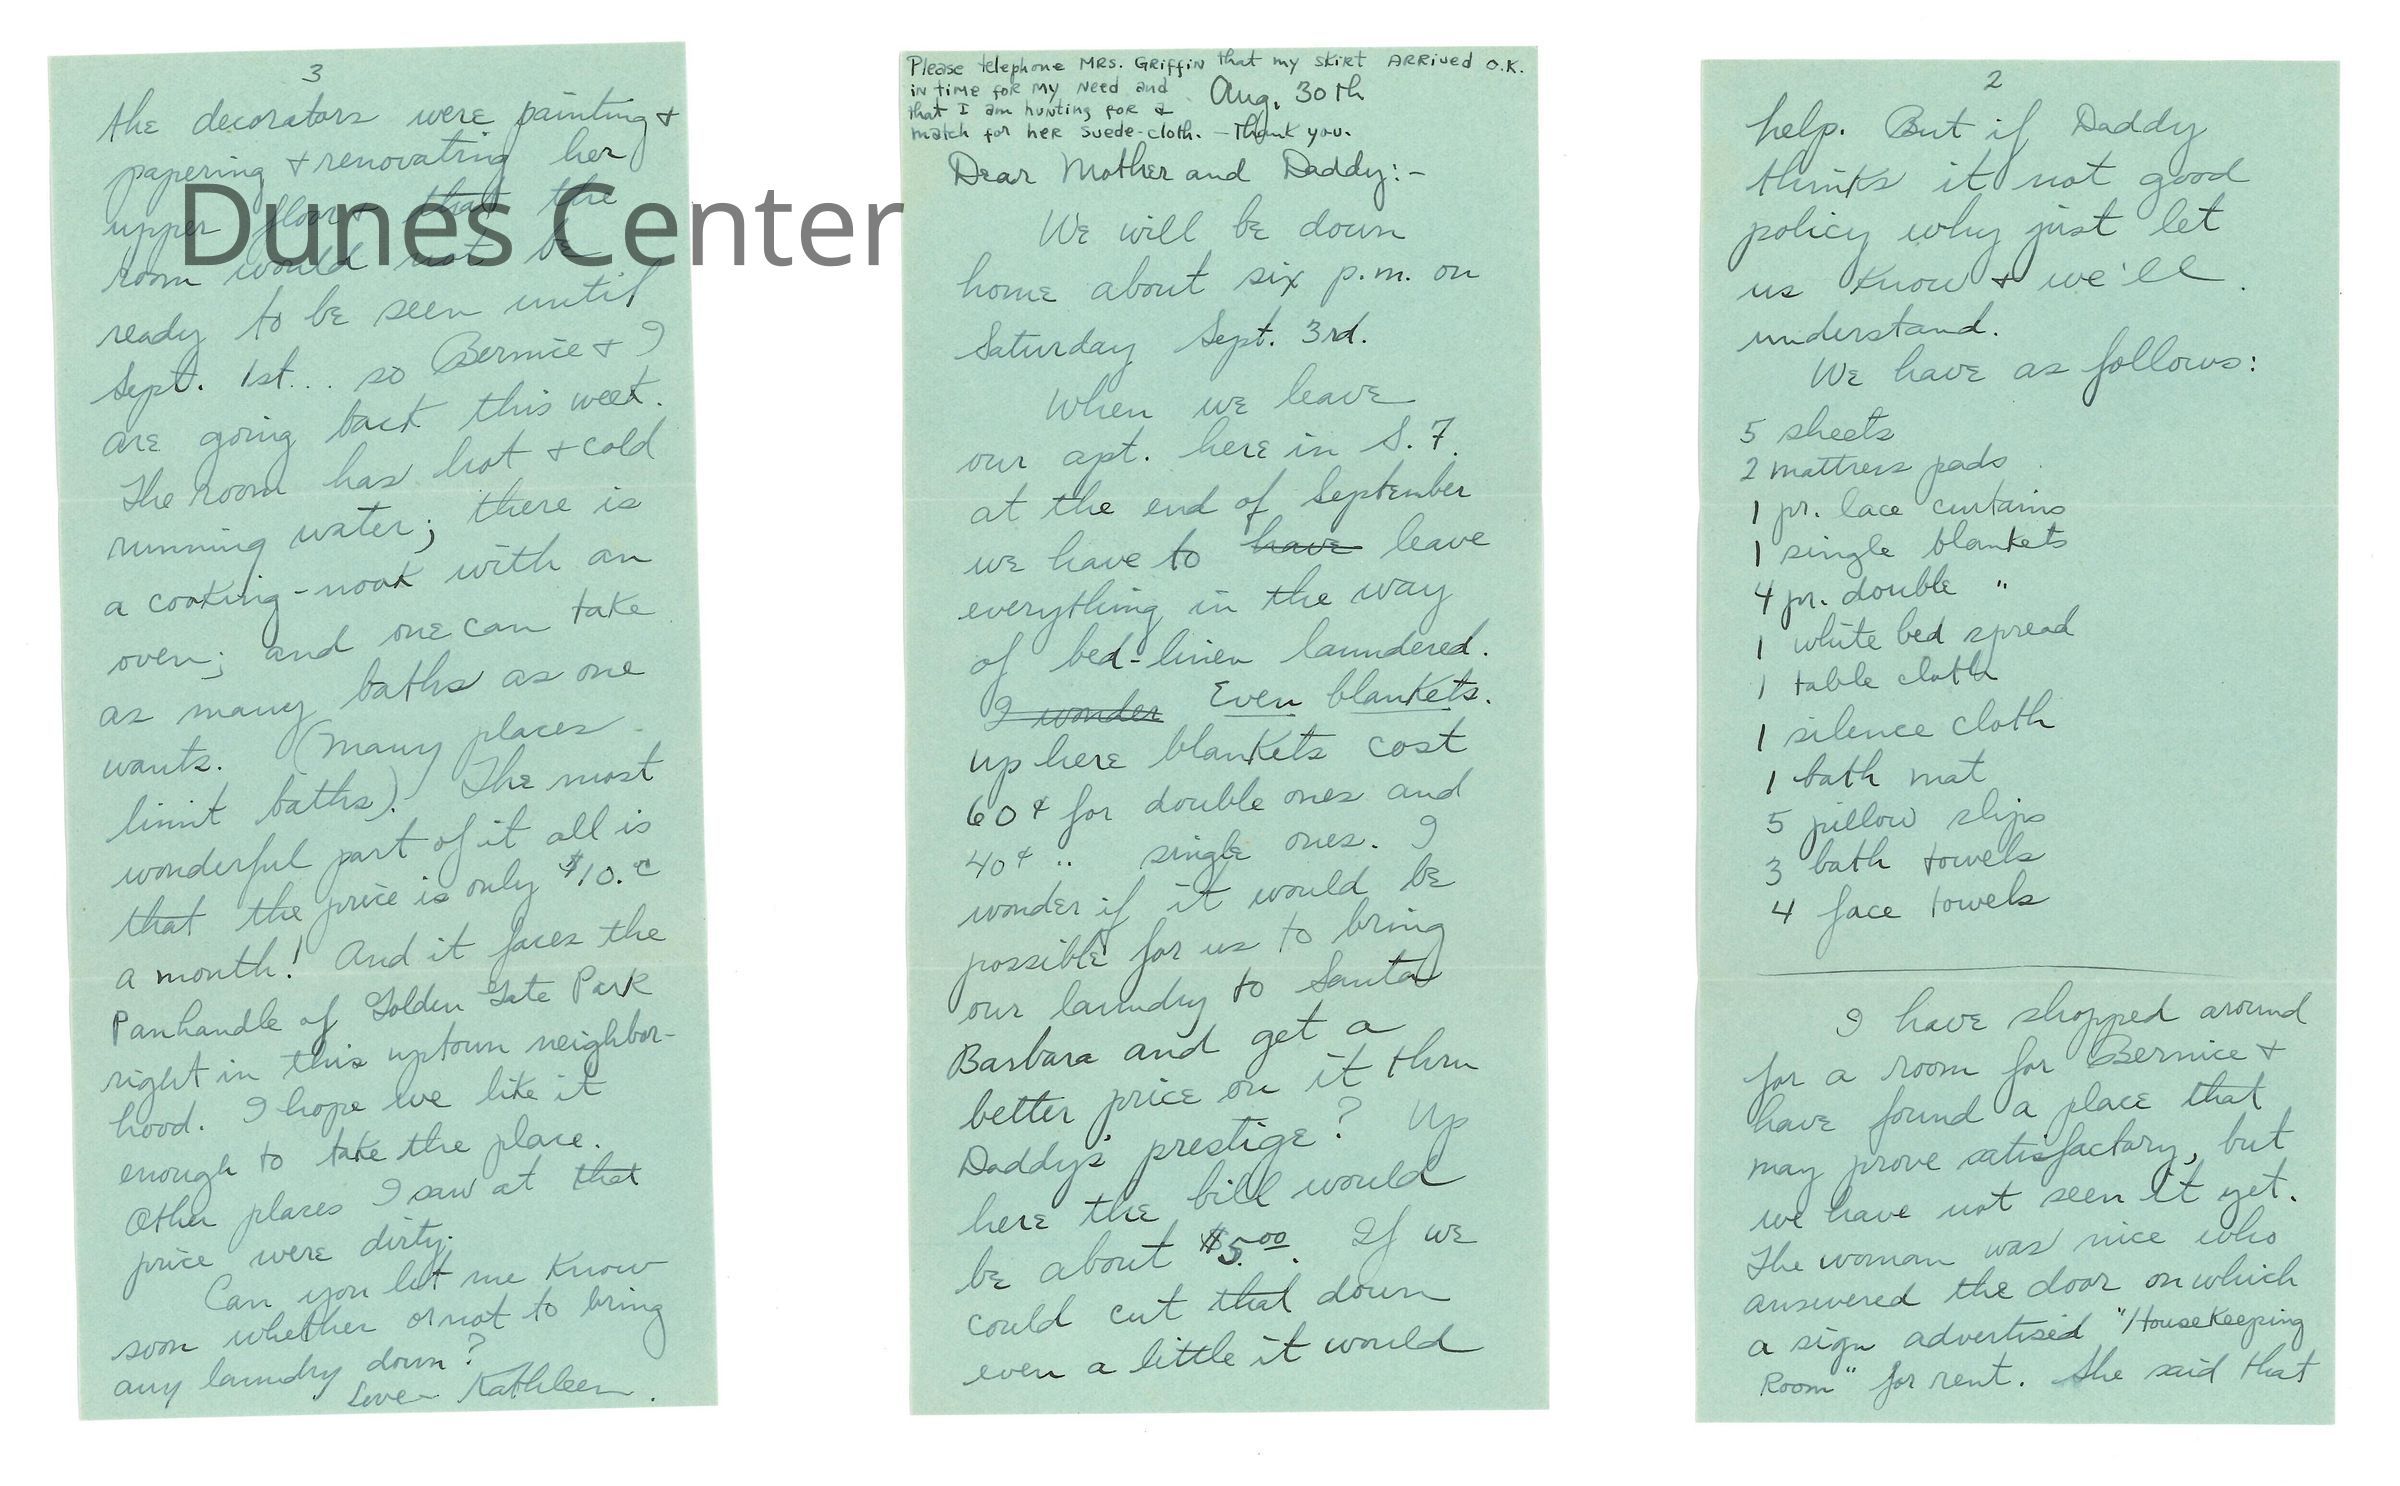 Please telephone MRS. GRiffiN that my skirt ARRived O.K.
iN time foR my Need and
that I am huNting foR a
match for heR suede-cloth. — Thank you.
Aug. 30th
Dear Mother and Daddy:-
We will be down
home about six p.m. on
Saturday Sept. 3rd.
When we leave
our apt. here in S.F.
at the end of September
we have to have leave
everything in the way
of bed-linen laundered.
I wonder Even blankets.
Up here blankets cost
60¢ for double ones and
40¢ " single ones. I
wonder if it would be
possible for us to bring
our laundry to Santa
Barbara and get a
better price on it thru
Daddy's prestige? Up
here the bill would
be about $5.00. If we
could cut that down
even a little it would
2
help. But if Daddy
thinks it not good
policy why just let
us know & we'll
understand.
We have as follows:
5 sheets
2 mattress pads
1 pr. lace curtains
1 single blankets
4 pr. double "
1 white bed spread
1 table cloth
1 silence cloth
1 bath mat
5 pillow slips
3 bath towels
4 face towels
I have shopped around
for a room for Bernice &
have found a place that
may prove satisfactory, but
we have not seen it yet.
The woman was nice who
answered the door on which
a sign advertised "Housekeeping
Room" for rent. She said that
3
the decorators were painting &
papering & renovating her
upper floor & that the
room would not be
ready to be seen until
Sept. 1st... so Bernice & I
are going back this week.
The room has hot & cold
running water; there is
a cooking-nook with an
oven; and one can take
as many baths as one
wants. (Many places
limit baths). The most
wonderful part of it all is
that the price is only $10.
a month! And it faces the
Panhandle of Golden Gate Park
right in this uptown neighbor-
hood. I hope we like it
enough to take the place.
Other places I saw at that
price were dirty.
Can you let me know
soon whether or not to bring
any laundry down?
Love - Kathleen.
Dunes Center